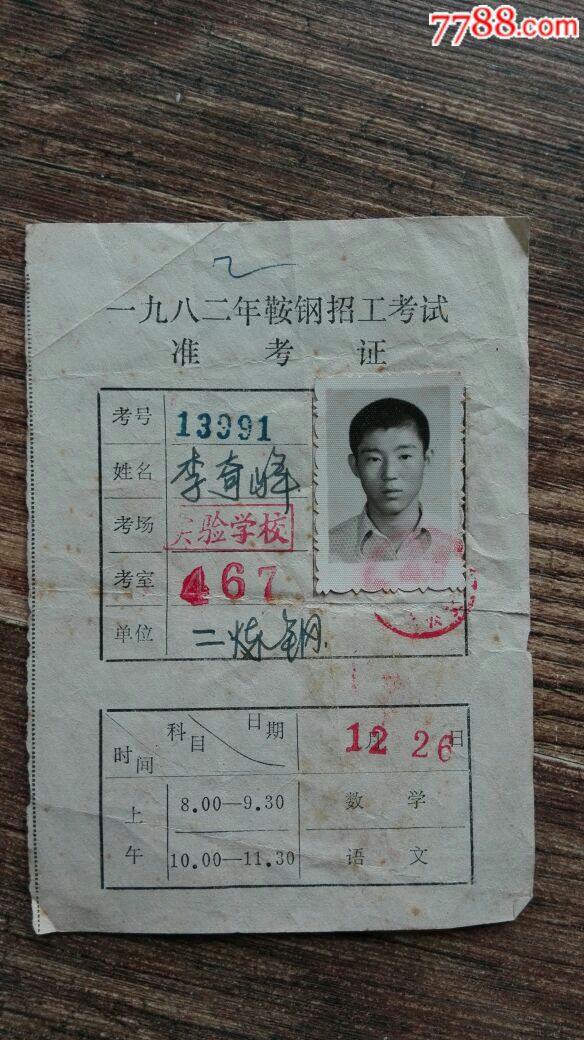 7788.com
一九八二年鞍钢招工考试
准考证
考号 13991
姓名 李奇峰
考场 实验学校
考室 467
单位 二炼钢.
科目 日期 时间 12月26日
上午 8.00—9.30 数学
10.00—11.30 语文